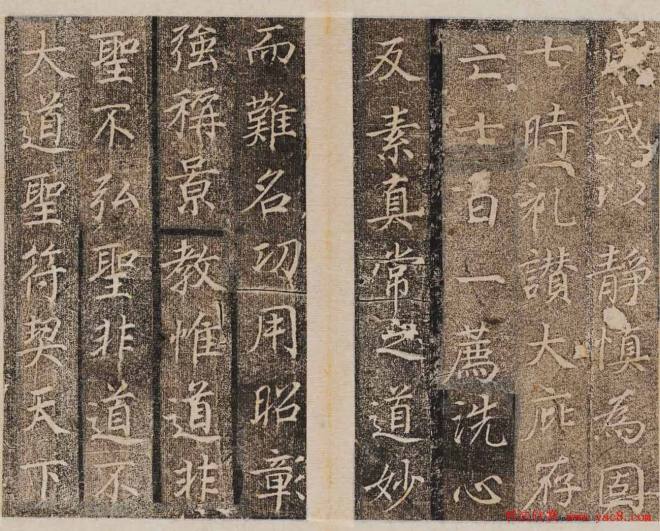 戒以靜慎為固
七時礼讃大庇存
亡七日一薦洗心
反素真常之道妙
而難名功用昭彰
強稱景教惟道非
聖不弘聖非道不
大道聖符契天下
www.yac8.com